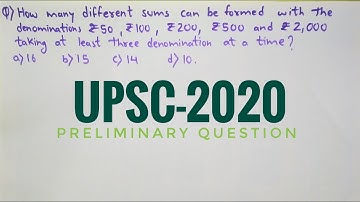 Q) How many different sums can be formed with the
denominations ₹50, ₹100, ₹200, ₹500 and ₹2,000
taking at least three denomination at a time?
a) 16 b) 15 c) 14 d) 10.
UPSC-2020
PRELIMINARY QUESTION